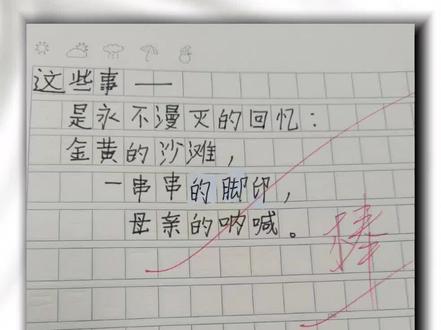 这些事——
是永不漫灭的回忆:
金黄的沙滩,
一串串的脚印,
母亲的呐喊。
棒